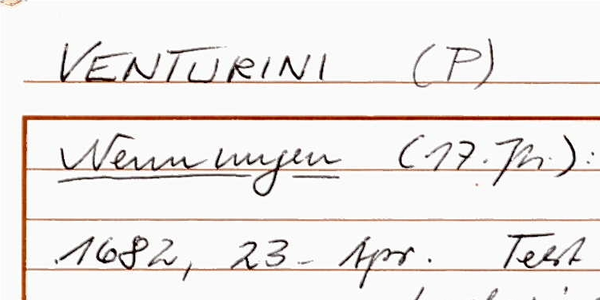 VENTURINI (P)
Nennungen (17. Jh.):
1682, 23. Apr. Test